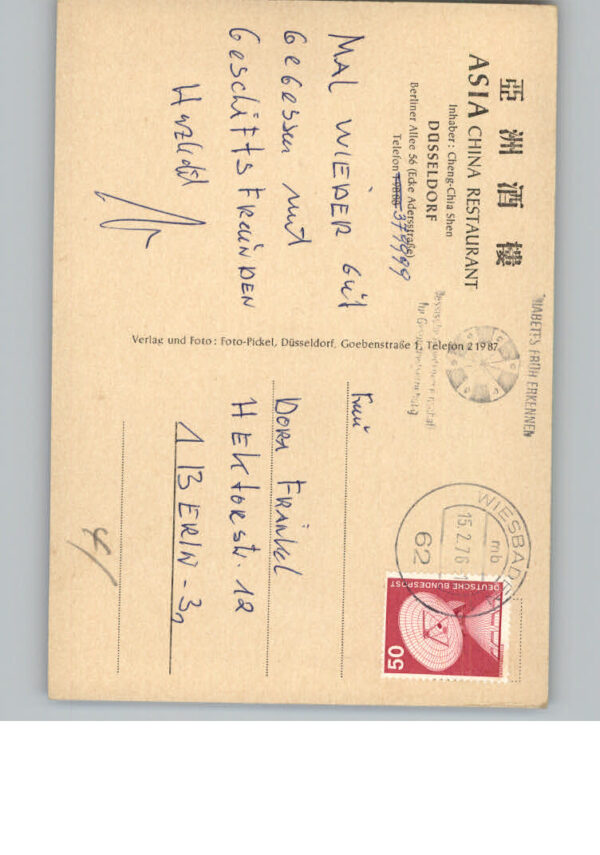 亞洲酒樓
ASIA CHINA RESTAURANT
Inhaber: Cheng-Chia Shen
DÜSSELDORF
Berliner Allee 56 (Ecke Adersstraße)
Telefon 379999
MAL WIEDER GUT
GEGESSEN mit
GESCHÄFTSFREUNDEN
Herzlichst
Verlag und Foto: Foto-Pickel, Düsseldorf, Goebenstraße 1, Telefon 21987
DIABETES FRÜH ERKENNEN
Hessische
für Gesundheitserziehung
WIESBADEN
15.2.76
mb
62
DEUTSCHE BUNDESPOST
50
Frau
DORA Fränkel
HEKtorstr. 12
1 BERlN-31